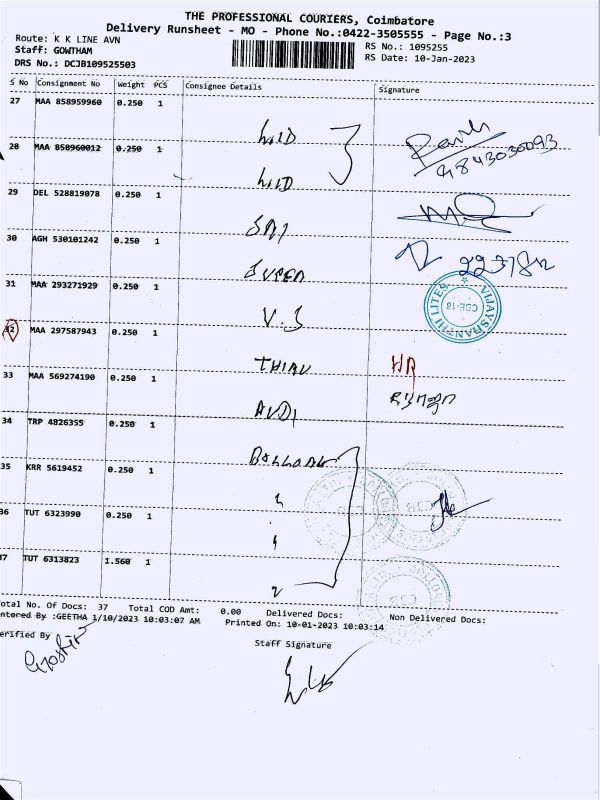 THE PROFESSIONAL COURIERS, Coimbatore
Delivery Runsheet - MO - Phone No.:0422-3505555 - Page No.:3
Route: K K LINE AVN
RS No.: 1095255
Staff: GOWTHAM
RS Date: 10-Jan-2023
DRS No.: DCJB109525503
S No Consignment No Weight PCS Consignee Details Signature
27 MAA 858959960 0.250 1
28 MAA 858960012 0.250 1
9843030093
29 DEL 528819078 0.250 1
SAI
30 AGH 530101242 0.250 1
SUPER
31 MAA 293271929 0.250 1
V.S
VIJAYSHANTHI LITES
CBE-18
32 MAA 297587943 0.250 1
HR
33 MAA 569274190 0.250 1
AUDI
34 TRP 4826355 0.250 1
35 KRR 5619452 0.250 1
36 TUT 6323990 0.250 1
37 TUT 6313823 1.560 1
Total No. Of Docs: 37 Total COD Amt: 0.00 Delivered Docs: Non Delivered Docs:
Entered By :GEETHA 1/10/2023 10:03:07 AM Printed On: 10-01-2023 10:03:14
Verified By
Staff Signature